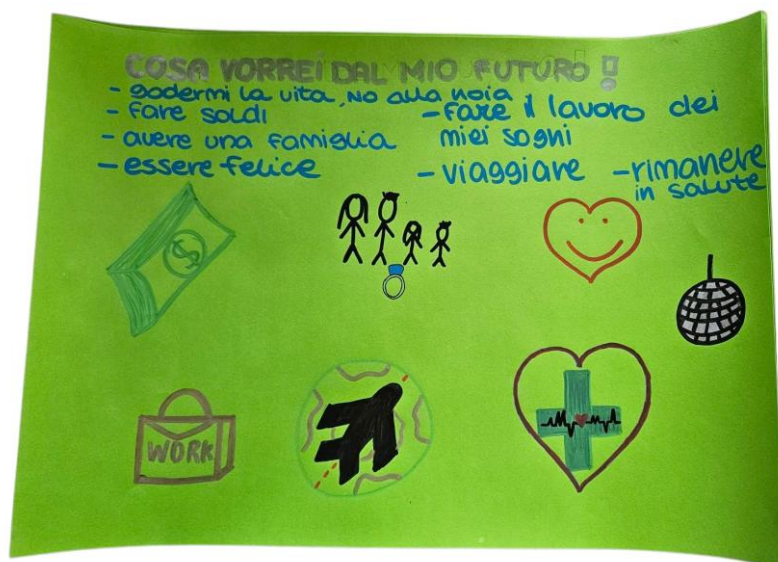 COSA VORREI DAL MIO FUTURO !
- godermi la vita, NO alla noia
- fare soldi
- avere una famiglia
- essere felice
- fare il lavoro dei
miei sogni
- viaggiare
- rimanere
in salute
$
WORK